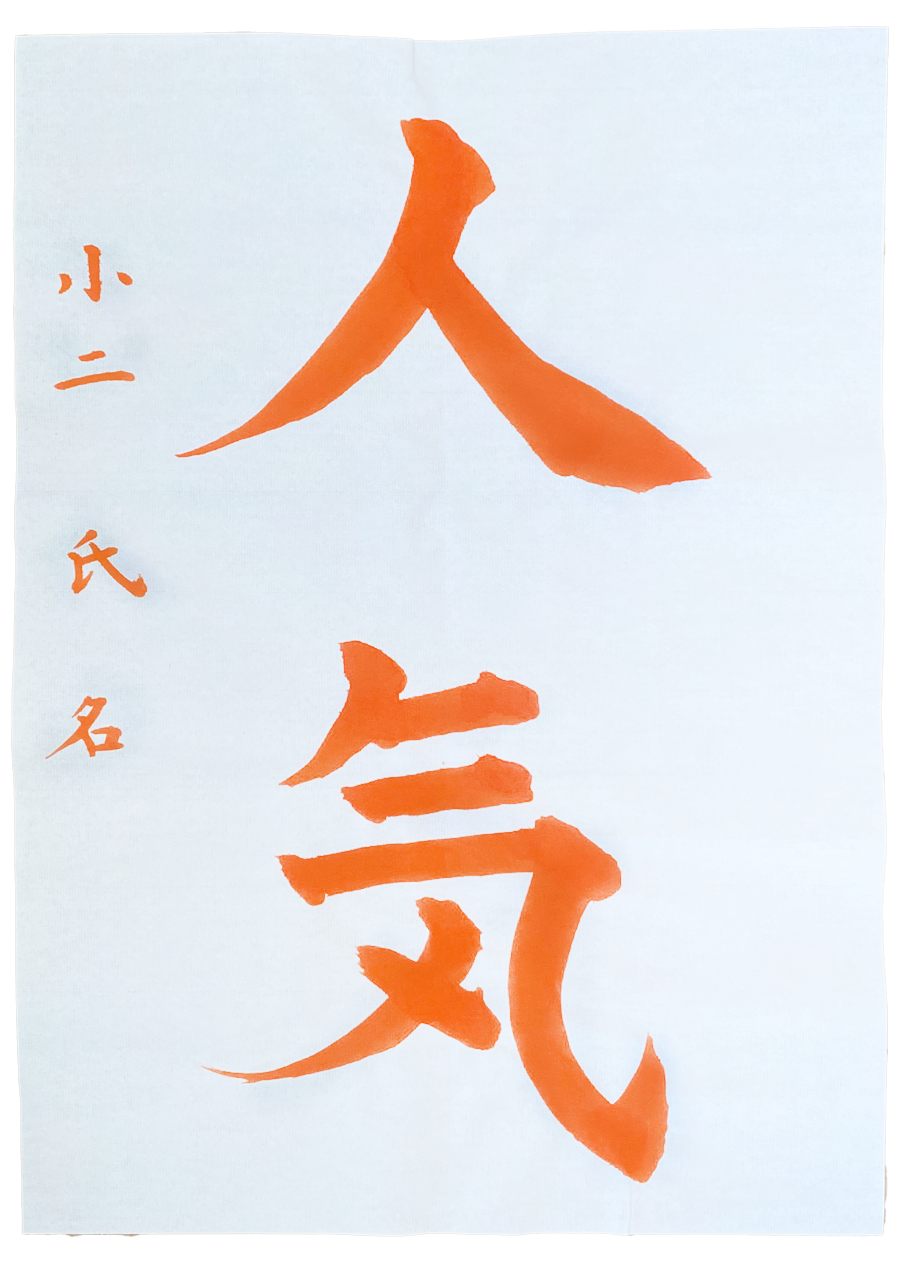 人気
小二 氏名